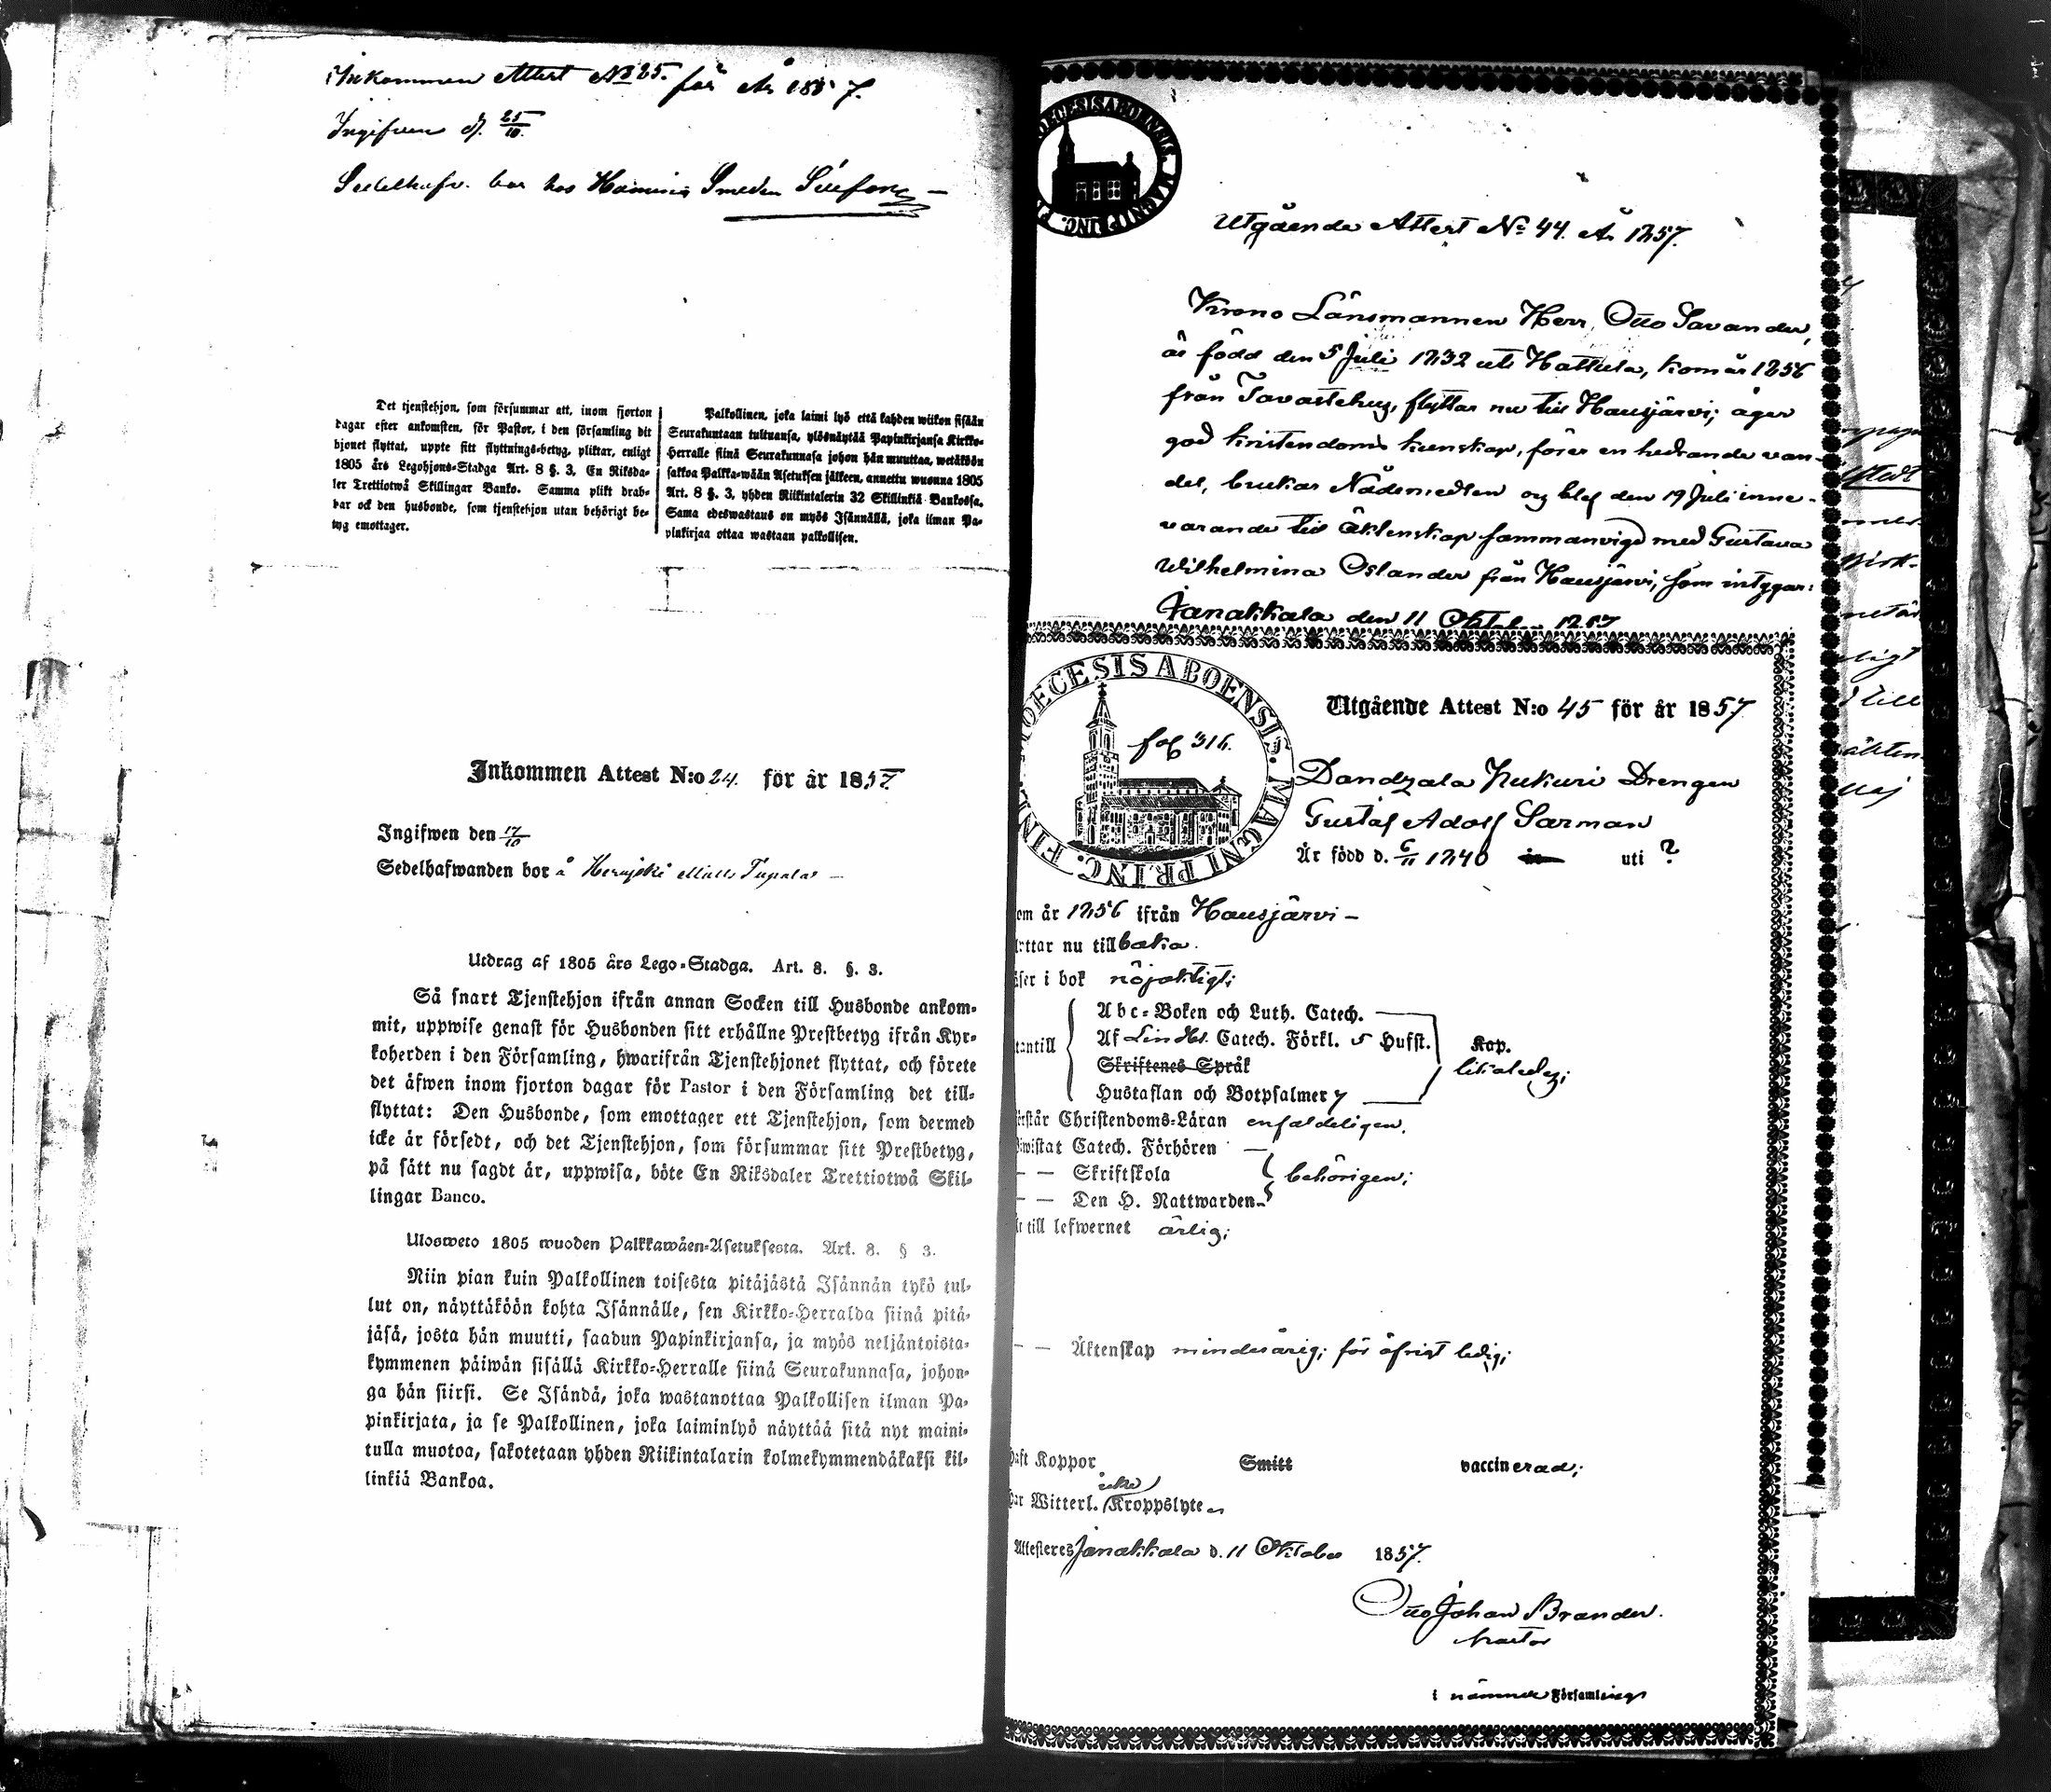 Inkommen Attest No 25. för År 1857.
Ingifven d. 25/10.
Sedelhafv. bor hos Hominis Smeden
Det tjenstehjon, som försummar att, inom fjorton
dagar efter ankomsten, för Pastor, i den församling dit
hjonet flyttat, uppte sitt flyttnings-betyg, pliktar, enligt
1805 års Legohjons-Stadga Art. 8 §. 3, En Riksda-
ler Trettiotwå Skillingar Banko. Samma plikt drab-
bar ock den husbonde, som tjenstehjon utan behörigt be-
tyg emottager.
Palkollinen, joka laimi lyö että kahden wiikon sisään
Seurakuntaan tultuansa, ylösnäytää Papinkirjansa Kirkko-
Herralle siinä Seurakunnasa johon hän muuttaa, wetäköön
sakkoa Palkka-wään Asetuksen jälkeen, annettu wuonna 1805
Art. 8 §. 3, yhden Riikintalerin 32 Skillinkiä Bankossa.
Sama edeswastaus on myös Isännällä, joka ilman Pa-
pinkirjaa ottaa wastaan palkollisen.
Inkommen Attest N:o 24. för år 1857.
Ingifwen den 17/10
Sedelhafwanden bor å Herajoki Matts Tupala
Utdrag af 1805 års Lego-Stadga. Art. 8. §. 3.
Så snart Tjenstehjon ifrån annan Socken till Husbonde ankom-
mit, uppwise genast för Husbonden sitt erhållne Prestbetyg ifrån Kyr-
koherden i den Församling, hwarifrån Tjenstehjonet flyttat, och förete
det äfwen inom fjorton dagar för Pastor i den Församling det till-
flyttat: Den Husbonde, som emottager ett Tjenstehjon, som dermed
icke är försedt, och det Tjenstehjon, som försummar sitt Prestbetyg,
på sätt nu sagdt är, uppwisa, böte En Riksdaler Trettiotwå Skil-
lingar Banco.
Ulosweto 1805 wuoden Palkkawäen-Asetuksesta. Art. 8. § 3.
Niin pian kuin Palkollinen toisesta pitäjästä Isännän tykö tul-
lut on, näyttäköön kohta Isännälle, sen Kirkko-Herralda siinä pitä-
jäsä, josta hän muutti, saadun Papinkirjansa, ja myös neljäntoista-
kymmenen päiwän sisällä Kirkko-Herralle siinä Seurakunnasa, johon-
ga hän siirsi. Se Isändä, joka wastanottaa Palkollisen ilman Pa-
pinkirjata, ja se Palkollinen, joka laiminlyö näyttää sitä nyt maini-
tulla muotoa, sakotetaan yhden Riikintalarin kolmekymmendäkaksi kil-
linkiä Bankoa.
OECESIS ABOENSIS. MAGNI PRINC. F
Utgående Attest No 44. År 1857.
Krono Länsmannen Herr Otto Savander,
är född den 5 Juli 1832 uti Hattula, kom år 1856
från Tavastehus, flyttar nu till Hausjärvi; äger
god kristendoms kunskap, förer en hedrande van-
del, brukar Nådemedlen og blef den 19 Juli inne-
varande till äktenskap sammanvigd med Gustava
Wilhelmina Oslander från Hausjärvi, som intygar:
Janakkala den 11 Oktober 1857
OECESIS ABOENSIS. MAGNI PRINC. FIN
fol 316.
Utgående Attest N:o 45 för år 1857
Dandzala Kukuri Drengen
Gustaf Adolf Sarman
Är född d. 6/11 1840 uti ?
om år 1856 ifrån Hausjärvi-
yttar nu till baka.
äser i bok nöjaktigt;
tantill
Abc-Boken och Luth. Catech.
Af Lindhs. Catech. Förkl. 5 Hufst.
Kap.
Skriftenes Språk
Hustaflan och Botpsalmer 7
likaledes;
örstår Christendoms-Läran enfaldeligen.
iwistat Catech. Förhören
— — Skriftskola
behörigen;
— — Den H. Nattwarden
r till lefwernet ärlig;
— — Äktenskap minderårig; för öfrigt ledig;
aft Koppor Smitt vaccinerad;
icke
ar Witterl. Kroppslyte
Attesteres Janakkala d. 11 Oktober 1857.
Otto Johan Brander.
Pastor
i nämnde Församling